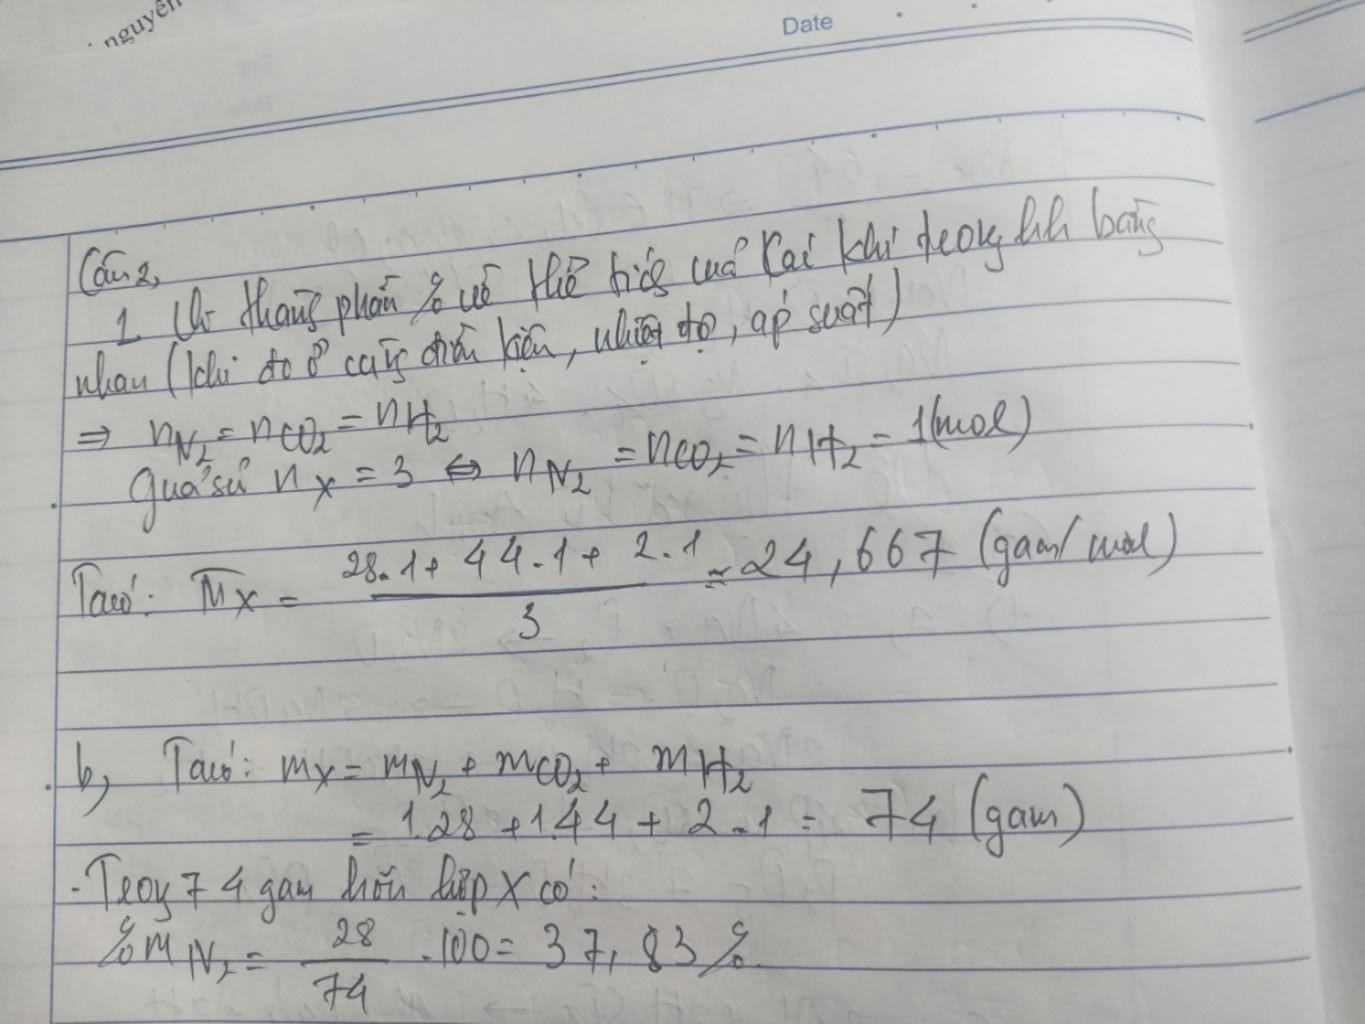 nguyên
Date
Câu 2,
1 Vì thành phần % về thể tích của các khí trong hh bằng
nhau (khi đo ở cùng điều kiện, nhiệt độ, áp suất)
⇒ nN₂ = nCO₂ = nH₂
Giả sử nX = 3 ⇔ nN₂ = nCO₂ = nH₂ = 1(mol)
Ta có: M̅X = (28.1+ 44.1+ 2.1)/3 ≈ 24,667 (gam/mol)
b, Ta có: mX = mN₂ + mCO₂ + mH₂
= 1.28 + 1.44 + 2.1 = 74 (gam)
- Trong 74 gam hỗn hợp X có:
%mN₂ = 28/74 .100 = 37,83%